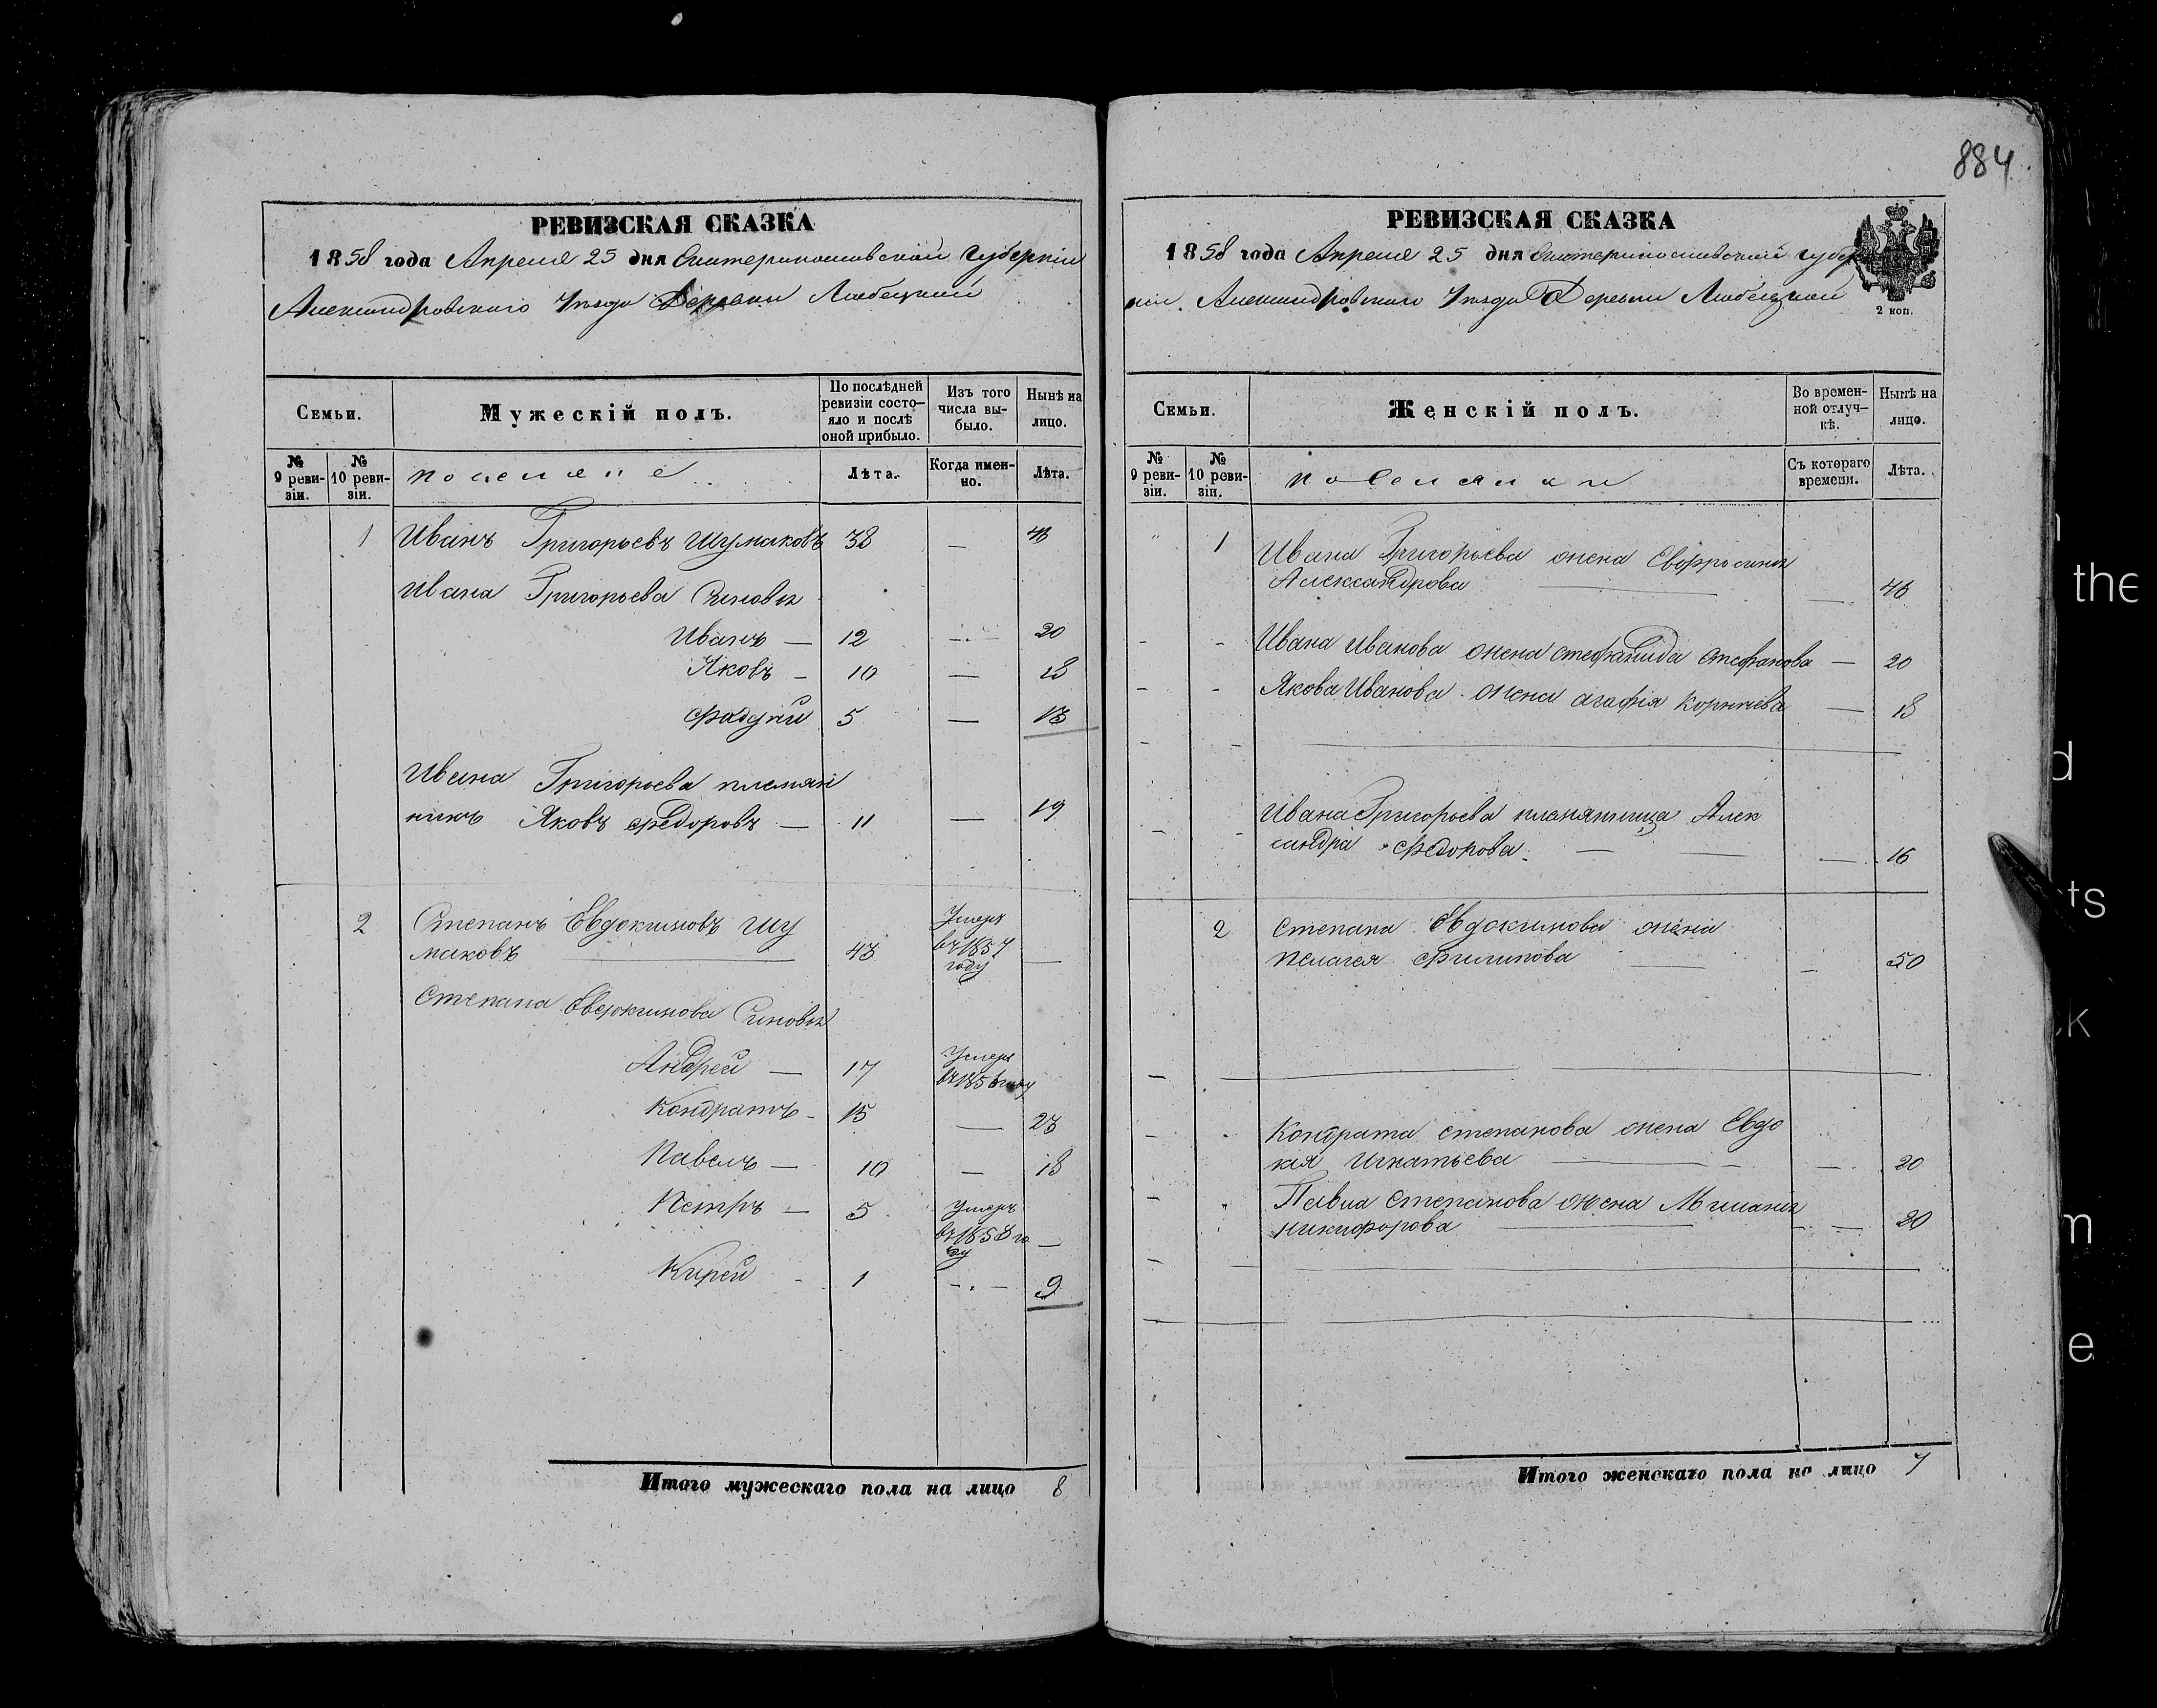 884
РЕВИЗСКАЯ СКАЗКА
1858 года Апреля 25 дня Екатеринославской губерніи
Александровскаго Уезда Деревни Любецкой
Семьи.
Мужескій полъ.
По послѣдней ревизіи состо-
яло и послѣ оной прибыло.
Изъ того числа вы-
было.
Нынѣ на лицо.
№ 9 реви-
зіи.
№ 10 реви-
зіи.
поселяне
Лѣта.
Когда имен-
но.
Лѣта.
1 Иванъ Григорьевъ Шумаковъ 38 —
Ивана Григорьева Сыновья
Иванъ — 12 —.— 20
Яковъ — 10 — 18
Фадѣй 5 — 13
Ивана Григорьева племян
никъ Яковъ Федоровъ — 11 — 19
2 Степанъ Евдокимовъ Шу
маковъ 43 Умеръ въ 1857 году —
Степана Евдокимова Синовья
Андрей — 17 Умеръ въ 1856 году
Кондратъ - 15 — 23
Павелъ — 10 — 18
Петръ — 5 Умеръ въ 1858 го
ду —
Кирей - 1 -.- 9
Итого мужескаго пола на лицо 8
РЕВИЗСКАЯ СКАЗКА
1858 года Апреля 25 дня Екатеринославской губер
ніи Александровскаго Уезда Деревни Любецкой
2 коп.
Семьи.
Женскій полъ.
Во времен-
ной отлуч-
кѣ.
Нынѣ на лицо.
№ 9 реви-
зіи.
№ 10 реви-
зіи.
поселянки
Съ котораго времени.
Лѣта.
1 Ивана Григорьева жена Евфросинья
Александрова — 46
Ивана Иванова жена Стефанида Стефанова — 20
Якова Иванова жена Агафія Корнѣева — 18
Ивана Григорьева племяница Алек
сандра Федорова — 16
2 Степана Евдокимова жена
Пелагея Филипова — 50
Кондрата Степанова жена Евдо
кія Игнатьева — 20
Павла Степанова жена Миланья
Никифорова — 20
Итого женскаго пола на лицо 7
the
d
ts
k
m
e